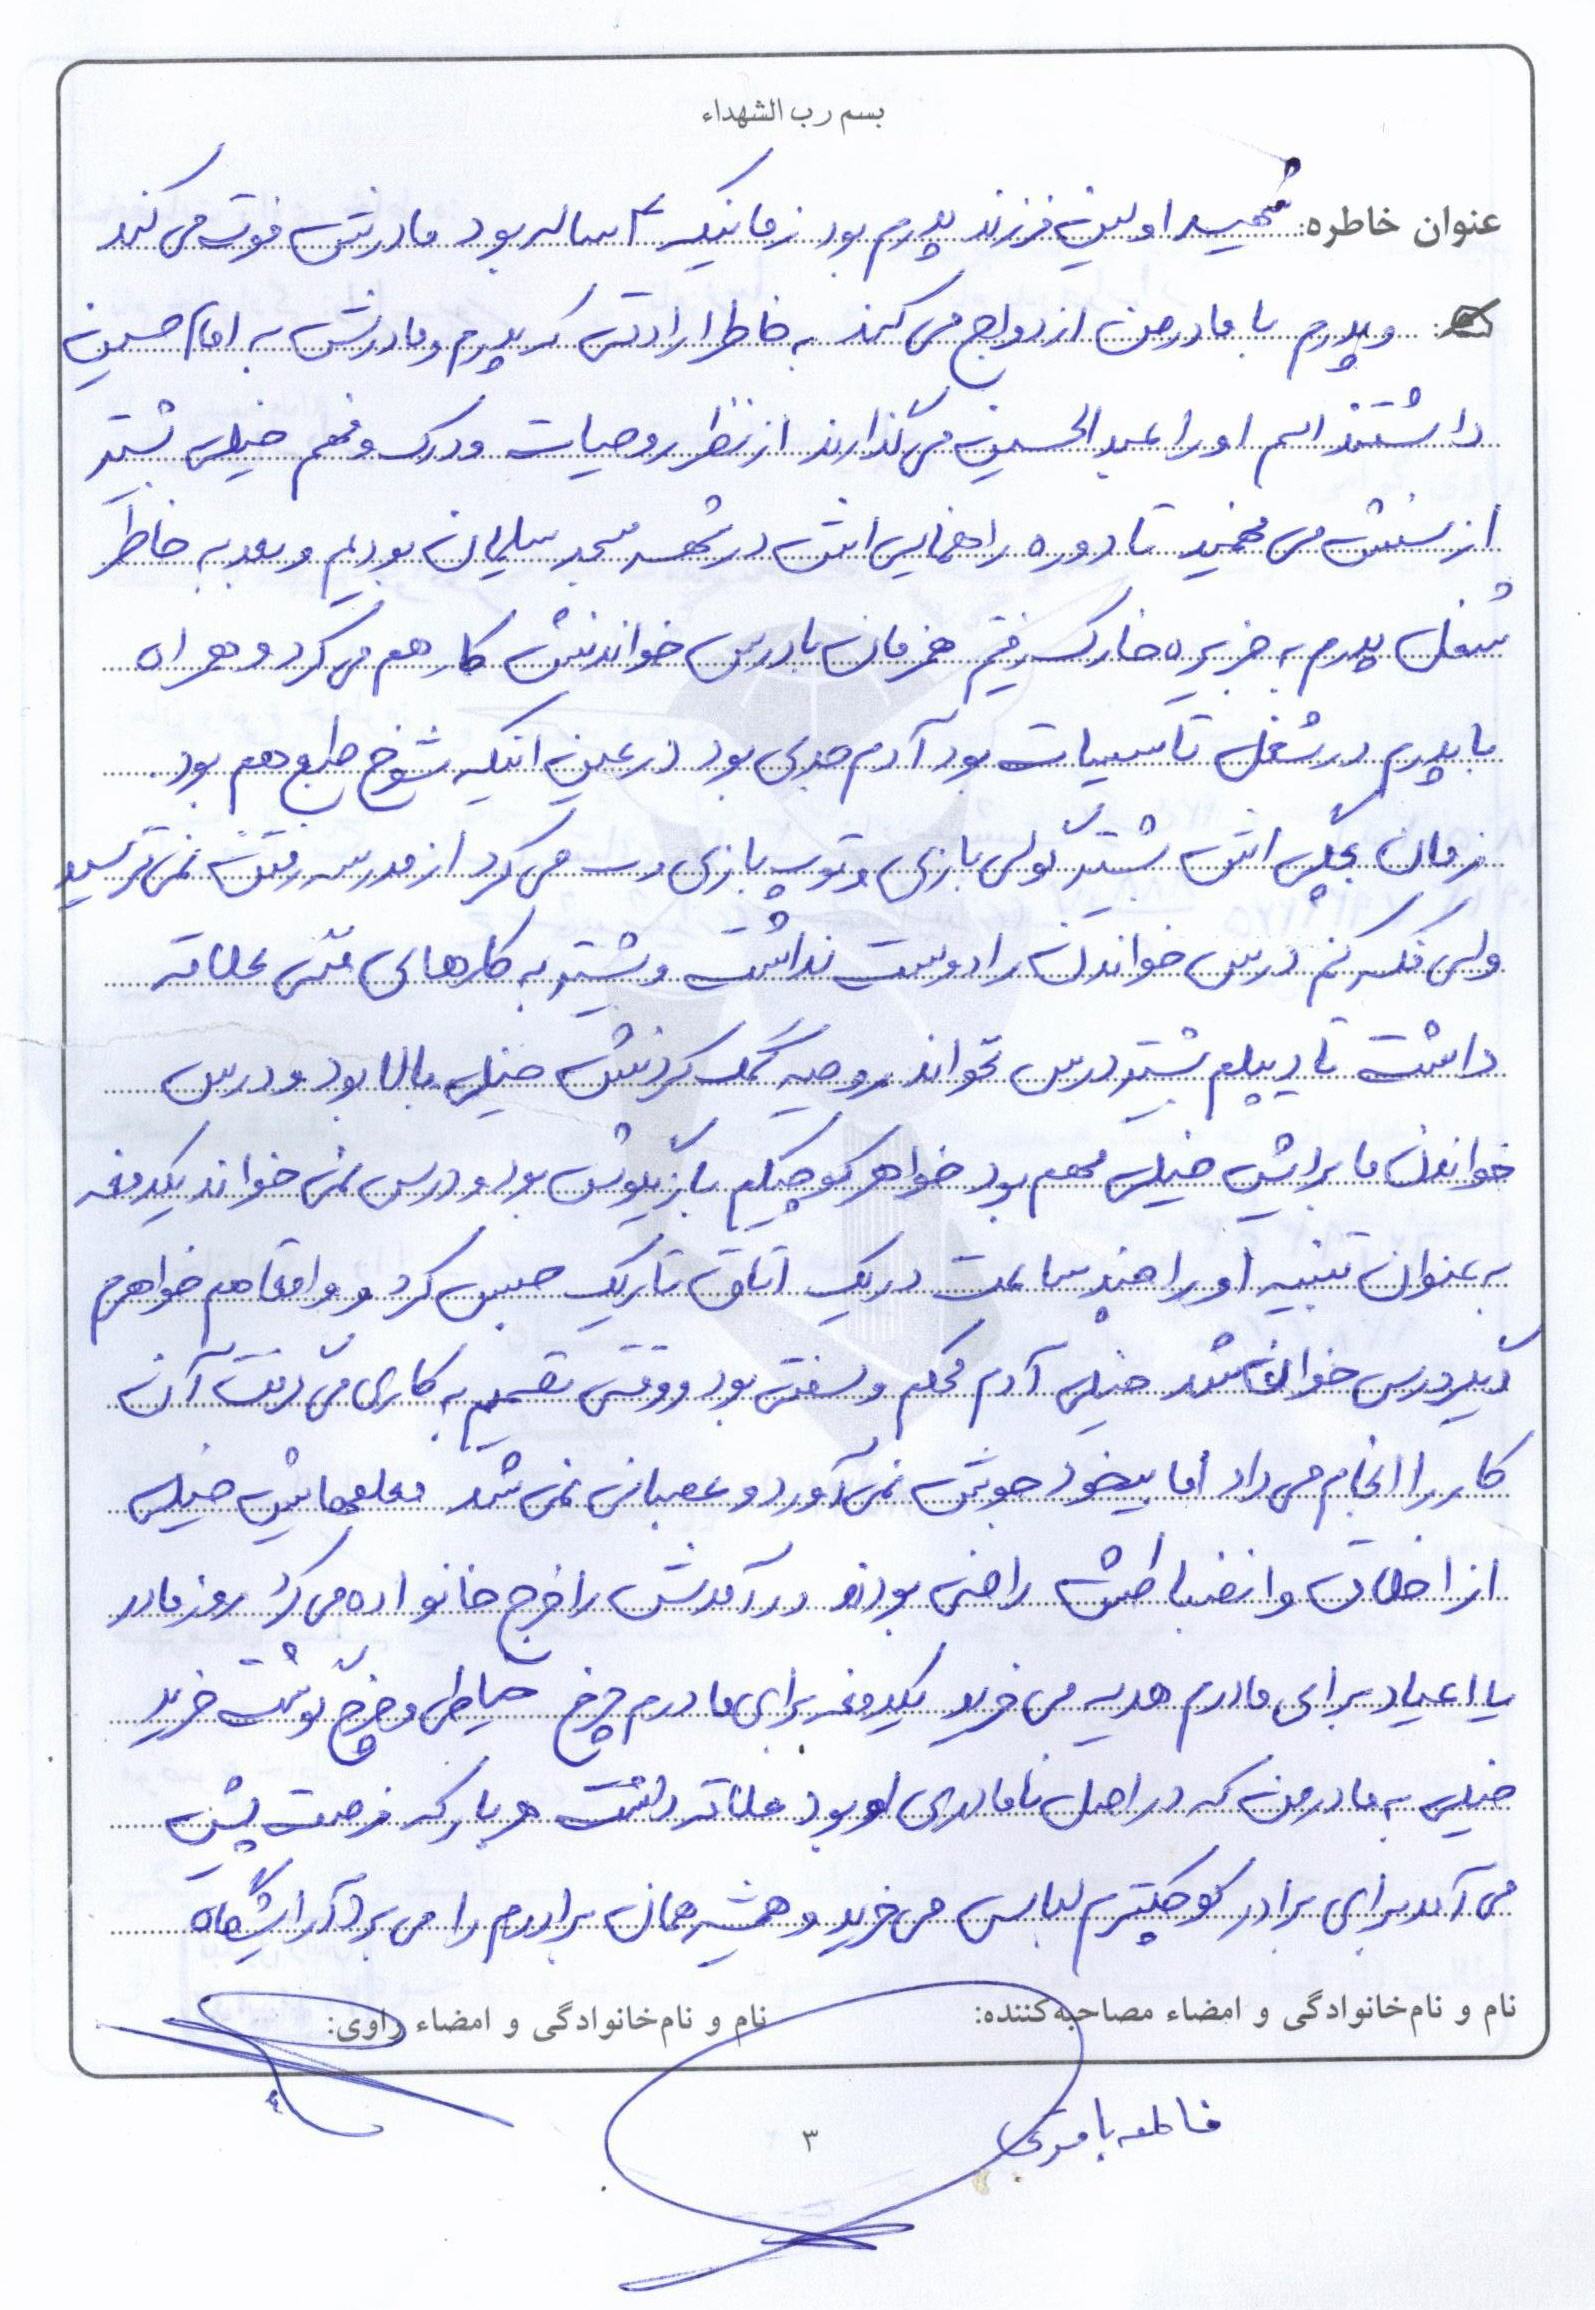 بسم رب الشهداء
عنوان خاطره: شهید اولین فرزند پدرم بود زمانیکه ۴ ساله بود مادرش فوت می کند
و پدرم با مادرمن ازدواج می کند به خاطر ارادتی که پدرم و مادرش به امام حسین
داشتند اسم او را عبدالحسین می گذارند از نظر روحیات و درک و فهم خیلی بیشتر
از سنش می فهمید تا دوره راهنمایی اش در شهر مسجد سلیمان بودیم و بعد به خاطر
شغل پدرم به جزیره خارک رفتیم همزمان با درس خواندنش کار هم می کرد و همراه
با پدرم در شغل تاسیسات بود آدم جدی بود در عین اینکه شوخ طبع هم بود.
زمان بچگی اش بیشتر گولی بازی و توپ بازی می کرد از مدرسه رفتن نمی ترسید
ولی فکر کنم درس خواندن را دوست نداشت و بیشتر به کارهای فنی علاقه
داشت تا دیپلم بیشتر درس نخواند روحیه کمک کردنش خیلی بالا بود و درس
خواندن ما برایش خیلی مهم بود خواهر کوچیکم بازیگوش بود و درس نمی خواند یکدفعه
به عنوان تنبیه او را چند ساعت در یک اتاق تاریک حبس کرد و واقعا هم خواهرم
دیگر درس خوان شد خیلی آدم محکم و سفتی بود و وقتی تصمیم به کاری می گرفت آن
کار را انجام می داد اما بیخود جوش نمی آورد و عصبانی نمی شد معلمهایش خیلی
از اخلاق و انضباطش راضی بودند درآمدش را خرج خانواده می کرد روز مادر
یا اعیاد برای مادرم هدیه می خرید یکدفعه برای مادرم چرخ خیاطی و چرخ گوشت خرید
خیلی به مادرمن که در اصل نامادری او بود علاقه داشت هر بار که فرصت پیش
می آمد برای برادر کوچکترم لباس می خرید و همیشه همان برادرم را می برد آرایشگاه
نام و نام‌خانوادگی و امضاء مصاحبه‌کننده: نام و نام‌خانوادگی و امضاء راوی:
فاطمه
۳